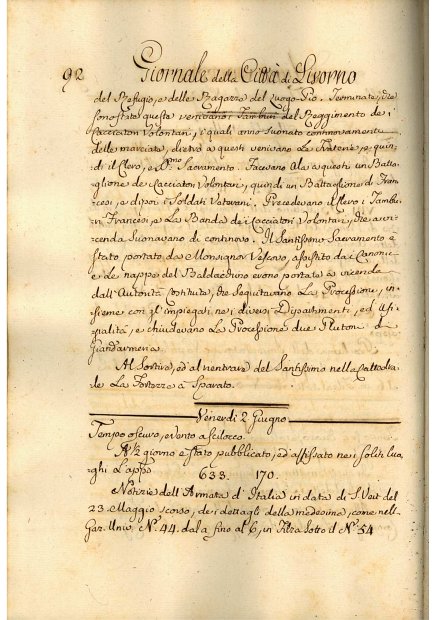 92 Giornale della Città di Livorno
del Refugio, e delle Ragazze del Luogo Pio. Terminate, che
sono state queste venivano i Tamburi del Reggimento de i
Cacciatori Volontari, i quali anno suonato continovamente
delle marciate, dietro a questi venivano Le Fraterie, e quin-
di il Clero, e SS.mo Sacramento. Facevano Ala a questi un Batta-
glione de Cacciatori Volontari, quindi un Battaglione di Fran-
cesi, e dipoi i Soldati Veterani. Precedevano il Clero i Tambu-
ri Francesi, e La Banda de i Cacciatori Volontari, che a vi-
cenda Suonavano di continovo. Il Santissimo Sacramento è
stato portato da Monsignor Vescovo, assistito da i Canonici
e le nappe del Baldacchino erono portate a vicenda
dall'Autorità Costituite, che seguitavano La Processione, in-
sieme con gl'impiegati ne i diversi Dipartimenti, ed Uf-
fizialità, e chiudevano La Processione due Plutoni di
Giandarmeria.
Al Sortire, ed al rientrare del Santissimo nella Cattedra-
le La Fortezza à Sparato.
Venerdì 2 Giugno
Tempo oscuro, e vento a Scilocco.
A ½ giorno è stato pubblicato, ed affissato ne i soliti Luo-
ghi L'app.o
633. 170.
Notizie dell'Armata d'Italia in data di S. Veit del
23. Maggio scorso, de i dettagli della medesima, come nella
Gaz. Univ. N.° 44. dal a fino al 6, in Filza Sotto il N.° 54